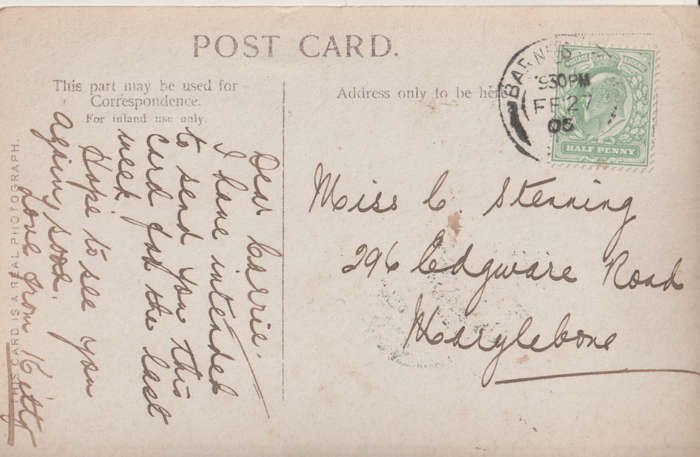 POST CARD.
This part may be used for
Correspondence.
For inland use only.
Address only to be here
BARNES
9.30PM
FE 27
06
HALF PENNY
Dear Carrie.
I have intended
to send you this
card for the last
week
Hope to see you
again soon.
Love from Kitty
Miss C. Stenning
296 Edgware Road
Marylebone
THIS CARD IS A REAL PHOTOGRAPH.